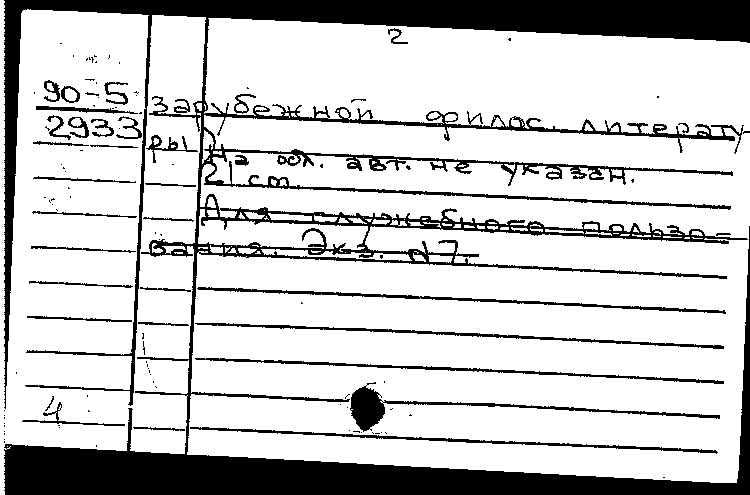 2
90-5
2933
зарубежной филос. литерату-
ры)
На обл. авт. не указан.
21 cm.
Для служебного пользо-
вания. Экз. N7.
4